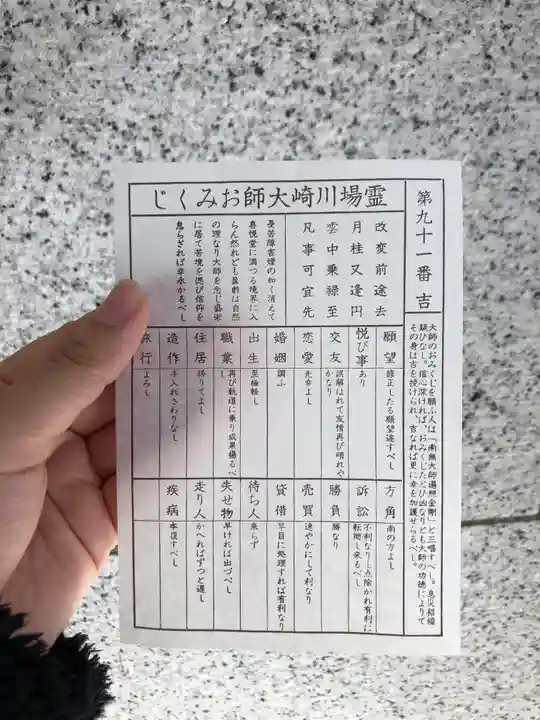 霊場川崎大師おみくじ
第九十一番 吉
大師のおみくじを願ふ人は「南無大師遍照金剛」と三唱すべし。息災招福
疑ひなし。信心深ければ、おみくじたとひ凶なりとも大師の功徳によりて
その身は吉を授けられ、吉なれば更に幸を加護せらるべし。
改変前途去
月桂又逢円
雲中乗禄至
凡事可宜先
憂苦障害煙の如く消えて
喜悦堂に満つる境界に入
らん然れども盈虧は自然
の理なり大師を念じ盛栄
に居て苦境を偲び信仰を
怠らざれば幸永かるべし
願望 修正したる願望達すべし
悦び事 あり
交友 誤解はれて友情再び晴れや
かなり
恋愛 先幸よし
婚姻 調ふ
出生 至極軽し
職業 再び軌道に乗り成果揚るべ
し
住居 移りてよし
造作 手入れさわりなし
旅行 よみし
方角 南の方よし
訴訟 不利なりし点除かれ有利に
転廻し来るべし
勝負 勝なり
売買 速やかにして利なり
貸借 早目に処理すれば有利なり
待ち人 来らず
失せ物 早ければ出づべし
走り人 かへればずつと遅し
疾病 本復すべし